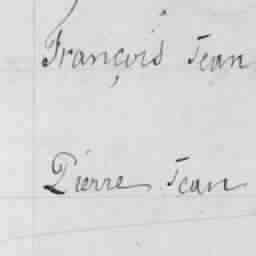 François Jean
Pierre Jean